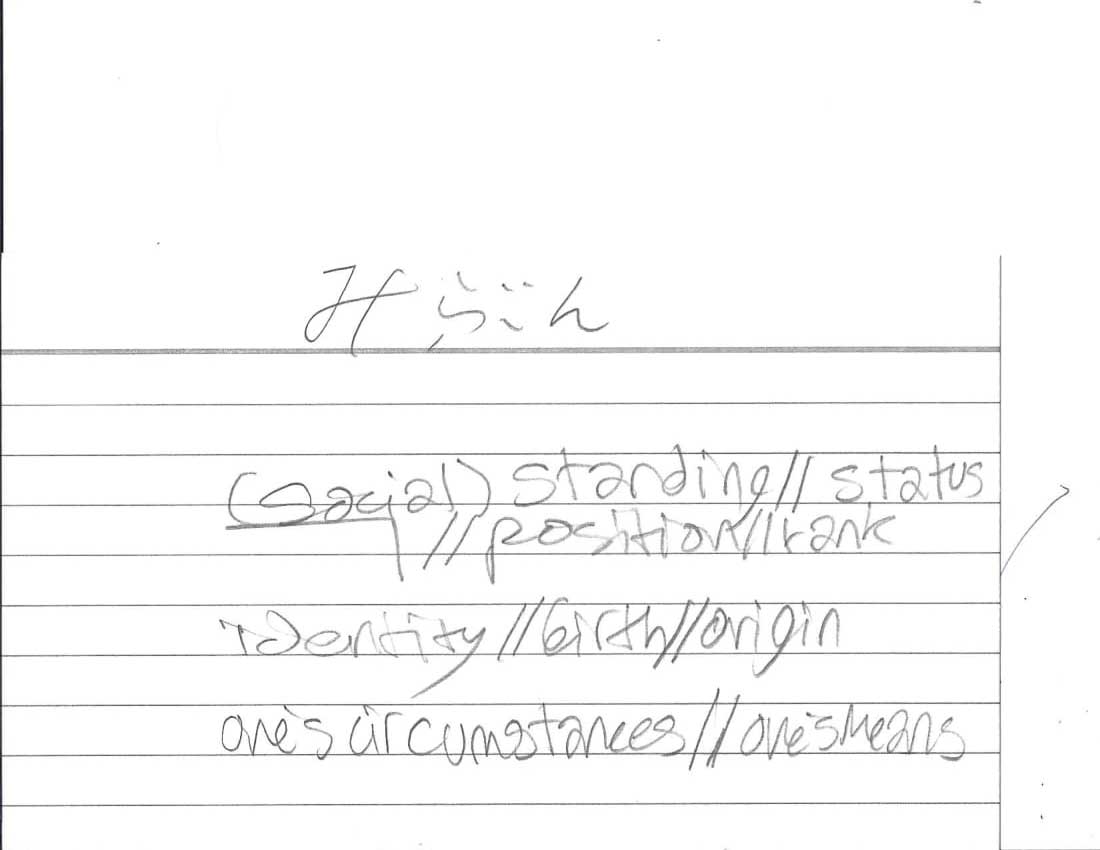 みぶん
(social) standing // status
// position // rank
identity // birth // origin
one's circumstances // one's means